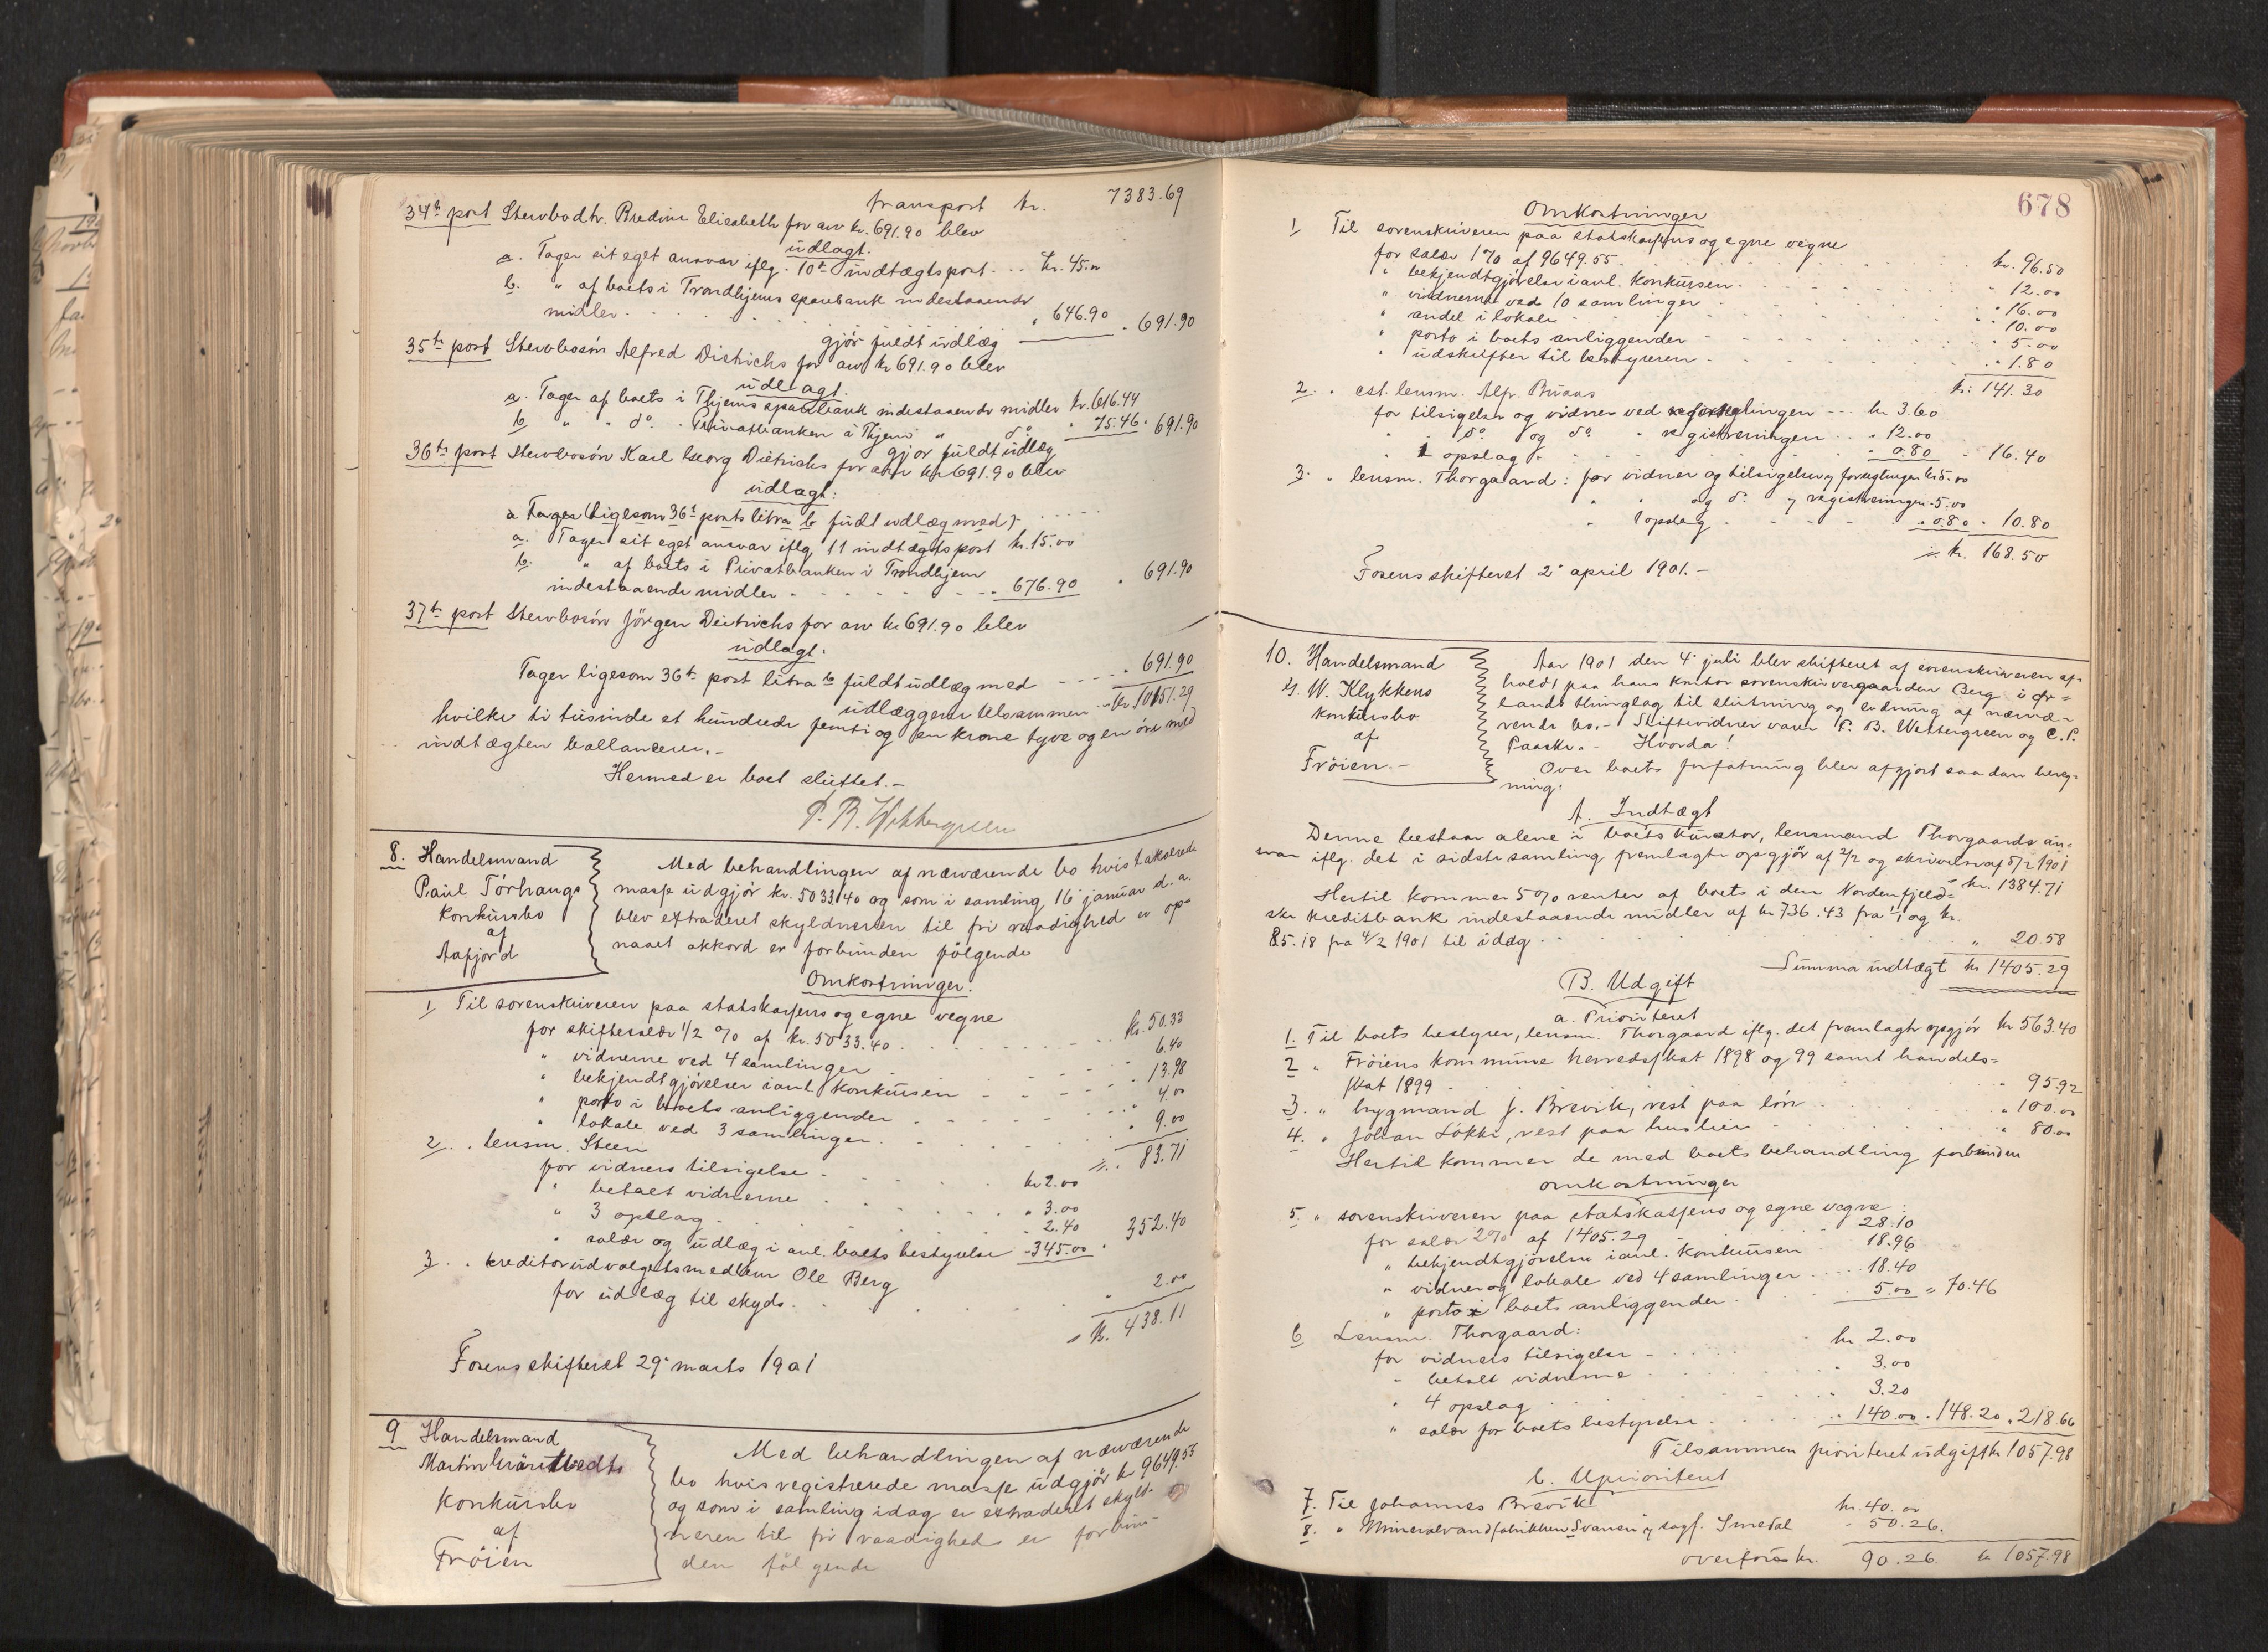 transport kr. 7383.69
34te post Stervbodtr. Bredine Elisabeth for arv kr. 691.90 blev
udlagt.
a. Tager sit eget ansvar iflg. 10de indtægtspost ... kr. 45.00
b. " af boets i Trondhjems sparebank indestaaende
midler . . . . . " 646.90 " 691.90
gjør fuldt udlæg
35te post Stervbosøn Alfred Dietrichs for arv kr 691.90 blev
udlagt.
a. Tager af boets i Thjems sparebank indestaaende midler kr. 616.44
b. " " do. " Privatbanken i Thjem " do " 75.46 " 691.90
gjør fuldt udlæg
36te post Stervbosøn Karl Georg Dietrichs for arv kr 691.90 blev
udlagt:
a Tager (ligesom 36te posts litra b fuldt udlæg med) - - - - -
a. Tager sit eget ansvar iflg 11 indtægtspost kr. 15.00
b. " af boets i Privatbanken i Trondhjem
indestaaende midler - - - - - - " 676.90 " 691.90
37te post Stervbosøn Jörgen Dietrichs for arv kr 691.90 blev
udlagt.
Tager ligesom 36te post litra b fuldt udlæg med - - - - " 691.90
udlæggene tilsammen - kr 10151.29
hvilke ti tusinde et hundrede femti og en krone tyve og en öre med
indtægten ballancerer. -
Hermed er boet sluttet. -
P. B. Wettergreen
8. Handelsmand
Paul Törhaugs
konkursbo
af
Aafjord
Med behandlingen af nærværende bo hvis takserede
masse udgjör kr. 5033.40 og som i samling 16 januar d. a.
blev extraderet skyldneren til fri raadighed er op-
naaet akkord er forbunden fölgende
Omkostninger.
1 Til sorenskriveren paa statskassens og egne vegne
for skiftesalær 1/2 % af kr. 5033.40 . . . . . . kr. 50.33
" vidnerne ved 4 samlinger 6.40
" bekjendtgjörelser i anl. konkursen - - - - " 13.98
" porto i boets anliggender . . . . " 4.00
" lokale ved 3 samlinger . . . . . " 9.00
2. " lensm. Steen //. " 83.71
for vidners tilsigelse - . . . . kr 2.00
" betalt vidnerne . . . . " 3.00
" 3 opslag . . . . . - 2.40
" salær og udlæg i anl. boets bestyrelse - 345.00 " 352.40
3. " kreditorudvalgetsmedlem Ole Berg
for udlæg til skyds . . . . . " 2.00
kr. 438.11
Fosens skifteret 29' marts 1901
9 Handelsmand
Martin
konkursbo
af
Fröien
Med behandlingen af nærværende
bo hvis registrerede masse udgjör kr 9649.55
og som i samling idag er extraderet skyld-
neren til fri raadighed er forbun-
den fölgende
678
Omkostninger
1 Til sorenskriveren paa statskassens og egne vegne
for salær 1% af 9649.55 . . . . . . kr. 96.50
" bekjendtgjörelse i anl. konkursen - - - - - " 12.00
" vidnerne ved 10 samlinger - - - - " 16.00
" andel i lokale - - - - - " 10.00
" porto i boets anliggender - - - - " 5.00
" udskrifter til bestyreren - - - - " 1.80
kr. 141.30
2. " cst. lensm. Alfr. Bruaas
for tilsigelse og vidner ved forseglingen - - - kr 3.60
" do og do " registreringen . . " 12.00
" 1 opslag . . . . . " 0.80 " 16.40
3. " lensm. Thorgaard: for vidner og tilsigelse v/ forseglingen kr 5.00
" " og do v/ registreringen " 5.00
" 1 opslag - - - - " 0.80 " 10.80
kr. 168.50
Fosens skifteret 2' april 1901. -
10. Handelsmand
G. W. Klykkens
konkursbo
af
Fröien. -
Aar 1901 den 4' juli blev skifteret af sorenskriveren af-
holdt paa hans kontor sorenskrivergaarden Berg i Ør-
lands thinglag til slutning og lodning af nærvæ-
rende bo. - Skiftevidner varer P. B. Wettergreen og C. P.
Paaske. - Hvorda!
Over boets forfatning blev afgjort saadan bereg-
ning:
A. Indtægt
Denne bestaar alene i boets kurator, lensmand Thorgaards an-
svar iflg. det i sidste samling fremlagte opgjör af 2/2 og skrivelse af 5/2 1901
- kr. 1384.71
Hertil kommer 5% renter af boets i den Nordenfjeld-
ske kreditbank indestaaende midler af kr 736.43 fra 1/1 og kr.
85.18 fra 4/2 1901 til idag . . . . . " 20.58
Summa indtægt kr 1405.29
B. Udgift
a. Prioriteret
1. Til boets bestyrer, lensm. Thorgaard iflg. det fremlagte opgjör kr 563.40
2 " Fröiens kommune herredsskat 1898 og 99 samt handels-
skat 1899 . . . . . " 95.92
3. " brygmand J. Brevik, rest paa lön . . . " 100.00
4. " Johan Lökke, rest paa husleie - . . . " 80.00
Hertil kommer de med boets behandling forbunden
omkostninger
5. " sorenskriveren paa statskassens og egne vegne
for salær 2% af 1405.29 . . 28.10
" bekjendtgjörelse i anl. konkursen . 18.96
" vidner og lokale ved 4 samlinger . . . . 18.40
" porto i boets anliggender . . . 5.00 " 70.46
6 Lensm. Thorgaard:
for vidners tilsigelse - . . . kr 2.00
- betalt vidnerne . . . 3.00
" 4 opslag . . . . 3.20
" salær for boets bestyrelse . . . " 140.00 " 148.20 " 218.66
Tilsammen prioriteret udgift kr 1057.98
b. Uprioriteret
7. Til Johannes Brevik kr. 40.00
8. " Mineralvandfabrikken Svanen v/ sagf. Smedal - 50.26.
overføres kr. 90.26. kr 1057.98